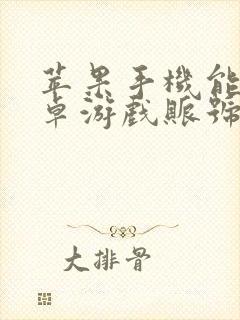 苹果手機能
卓游戲賬號
大排骨